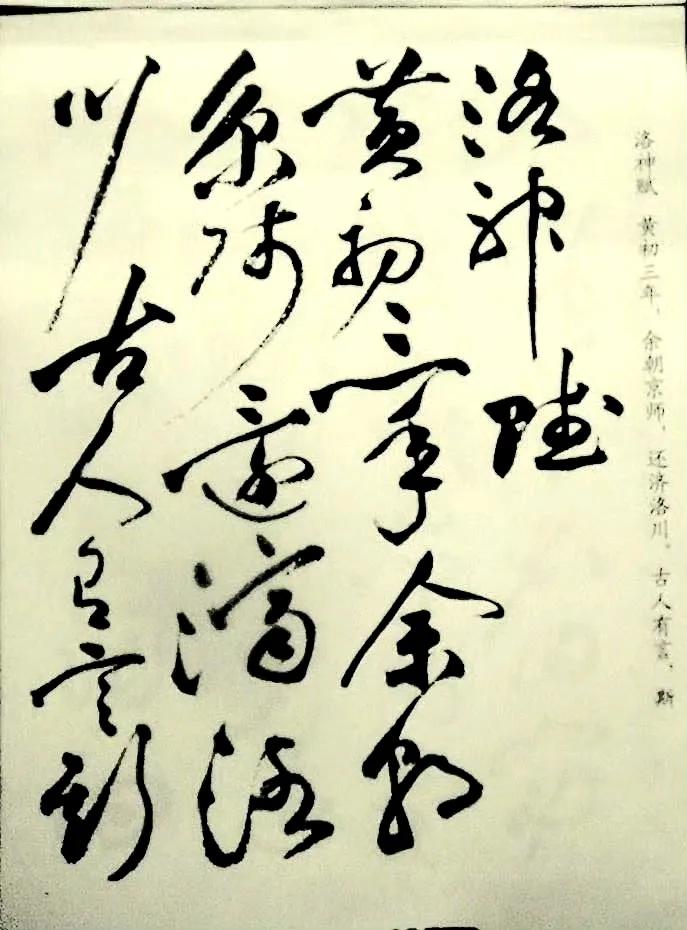 洛神赋 黄初三年，余朝京师，还济洛川。古人有言，斯
洛神賦
黄初三年余朝
京师還濟洛
川古人有言斯